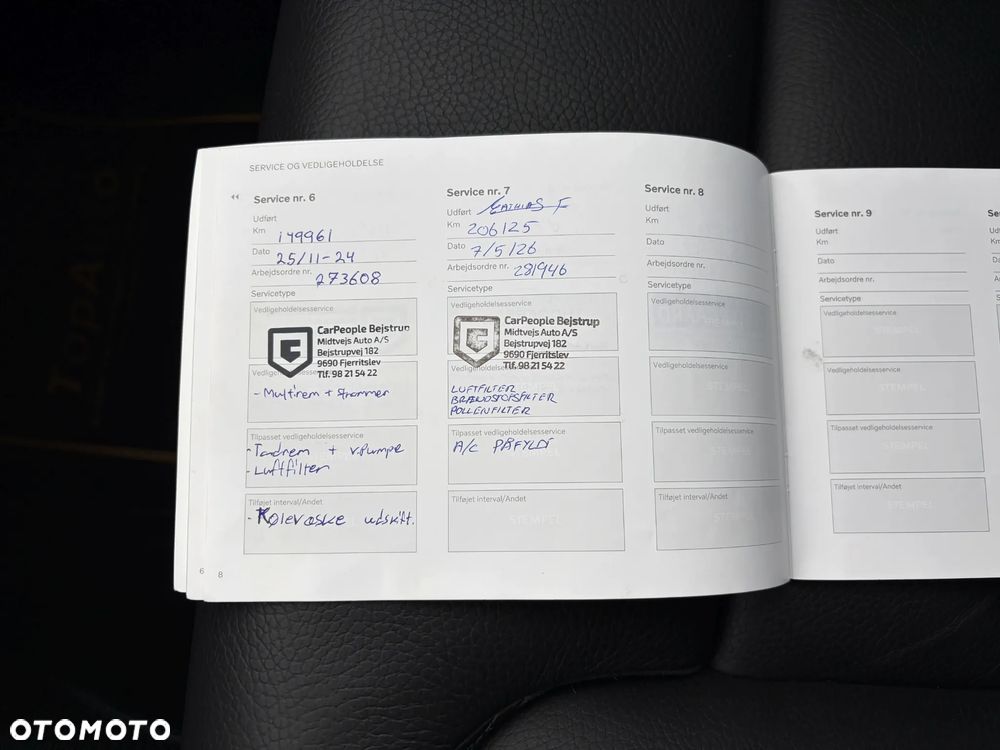 SERVICE OG VEDLIGEHOLDELSE
Service nr. 6
Udført
Km 149961
Dato 25/11-24
Arbejdsordre nr. 273608
Servicetype
Vedligeholdelsesservice
CarPeople Bejstrup
Midtvejs Auto A/S
Bejstrupvej 182
9690 Fjerritslev
Tlf. 98 21 54 22
- Multirem + Strammer
Tilpasset vedligeholdelsesservice
- Tandrem + v.Pumpe
- Luftfilter
Tilføjet interval/Andet
- Kølevæske udskift.
Service nr. 7
Udført MATHIAS F
Km 206125
Dato 7/5/26
Arbejdsordre nr. 281946
Servicetype
Vedligeholdelsesservice
CarPeople Bejstrup
Midtvejs Auto A/S
Bejstrupvej 182
9690 Fjerritslev
Tlf. 98 21 54 22
LUFTFILTER
BRÆNDSTOFSFILTER
POLLENFILTER
Tilpasset vedligeholdelsesservice
A/C PÅFYLDT
Tilføjet interval/Andet
STEMPEL
Service nr. 8
Udført
Km
Dato
Arbejdsordre nr.
Servicetype
Vedligeholdelsesservice
Vedligeholdelsesservice
Tilpasset vedligeholdelsesservice
Tilføjet interval/Andet
Service nr. 9
Udført
Km
Dato
Arbejdsordre nr.
Servicetype
Vedligeholdelsesservice
STEMPEL
Vedligeholdelsesservice
STEMPEL
Tilpasset vedligeholdelsesservice
STEMPEL
Tilføjet interval/Andet
STEMPEL
6
8
OTOMOTO